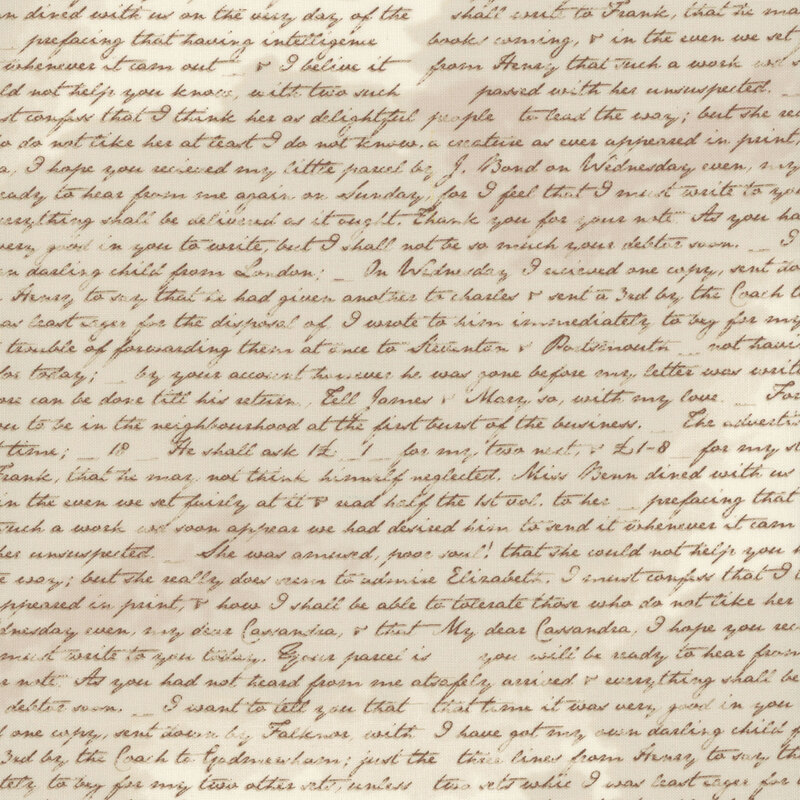 n dined with us on the very day of the shall write to Frank, that he ma
prefacing that having intelligence books coming, & in the even we set
whenever it cam out _ & I believe it from Henry that such a work was s
ld not help you know, with two such passed with her unsuspected. _
st confess that I think her as delightful people to lead the way; but she rea
o do not like her at least I do not know. a creature as ever appeared in print,
a, I hope you recieved my little parcel by J. Bond on Wednesday even, my
eady to hear from me again on Sunday, for I feel that I must write to you
erything shall be delivered as it ought. Thank you for your note As you ha
very good in you to write, but I shall not be so much your debtor soon. _ I
n darling child from London; _ On Wednesday I recieved one copy, sent do
Henry to say that he had given another to charles & sent a 3rd by the Coach t
as least eger for the disposal of I wrote to him immediately to beg for my
trouble of forwarding them at once to Steventon & Portsmouth _ not havi
for today; _ by your account however he was gone before my letter was writ
ore can be done till his return, Tell James & Mary so, with my love. _ For
ou to be in the neighbourhood at the first burst of the business. _ The advertis
t time; _ 18 _ He shall ask 1£ _ 1 _ for my two next, & £1-8 _ for my st
Frank, that he may not think himself neglected. Miss Benn dined with us
in the even we set fairly at it & read half the 1st vol. to her _ prefacing that
such a work was soon appear we had desired him to send it whenever it cam
her unsuspected. _ She was amused, poor soul! that she could not help you k
e way; but she really does seem to admire Elizabeth. I must confess that I t
ppeared in print, & how I shall be able to tolerate those who do not like her
dnesday even, my dear Cassandra, & that My dear Cassandra, I hope you rec
must write to you today. your parcel is you will be ready to hear from
r note As you had not heard from me at safely arrived & everything shall be
debtor soon. _ I want to tell you that that time it was very good in you
d one copy, sent down by Falknor with I have got my own darling child f
3rd by the Coach to Godmersham; just the three lines from Henry to say tha
tely to beg for my two other sets, unless two sets while I was least eger for